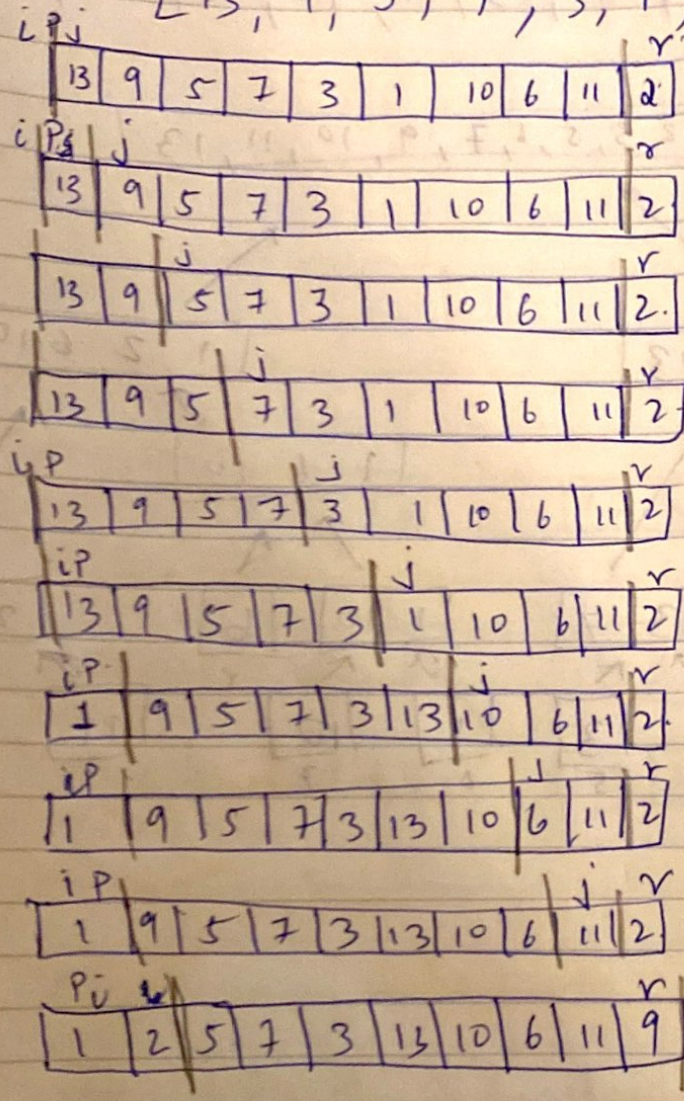 i P j r
13 9 5 7 3 1 10 6 11 2
i P j r
13 9 5 7 3 1 10 6 11 2
j r
13 9 5 7 3 1 10 6 11 2.
j r
13 9 5 7 3 1 10 6 11 2
i P j r
13 9 5 7 3 1 10 6 11 2
i P j r
13 9 5 7 3 1 10 6 11 2
i P j r
1 9 5 7 3 13 10 6 11 2
i P j r
1 9 5 7 3 13 10 6 11 2
i P j r
1 9 5 7 3 13 10 6 11 2
P i r
1 2 5 7 3 13 10 6 11 9